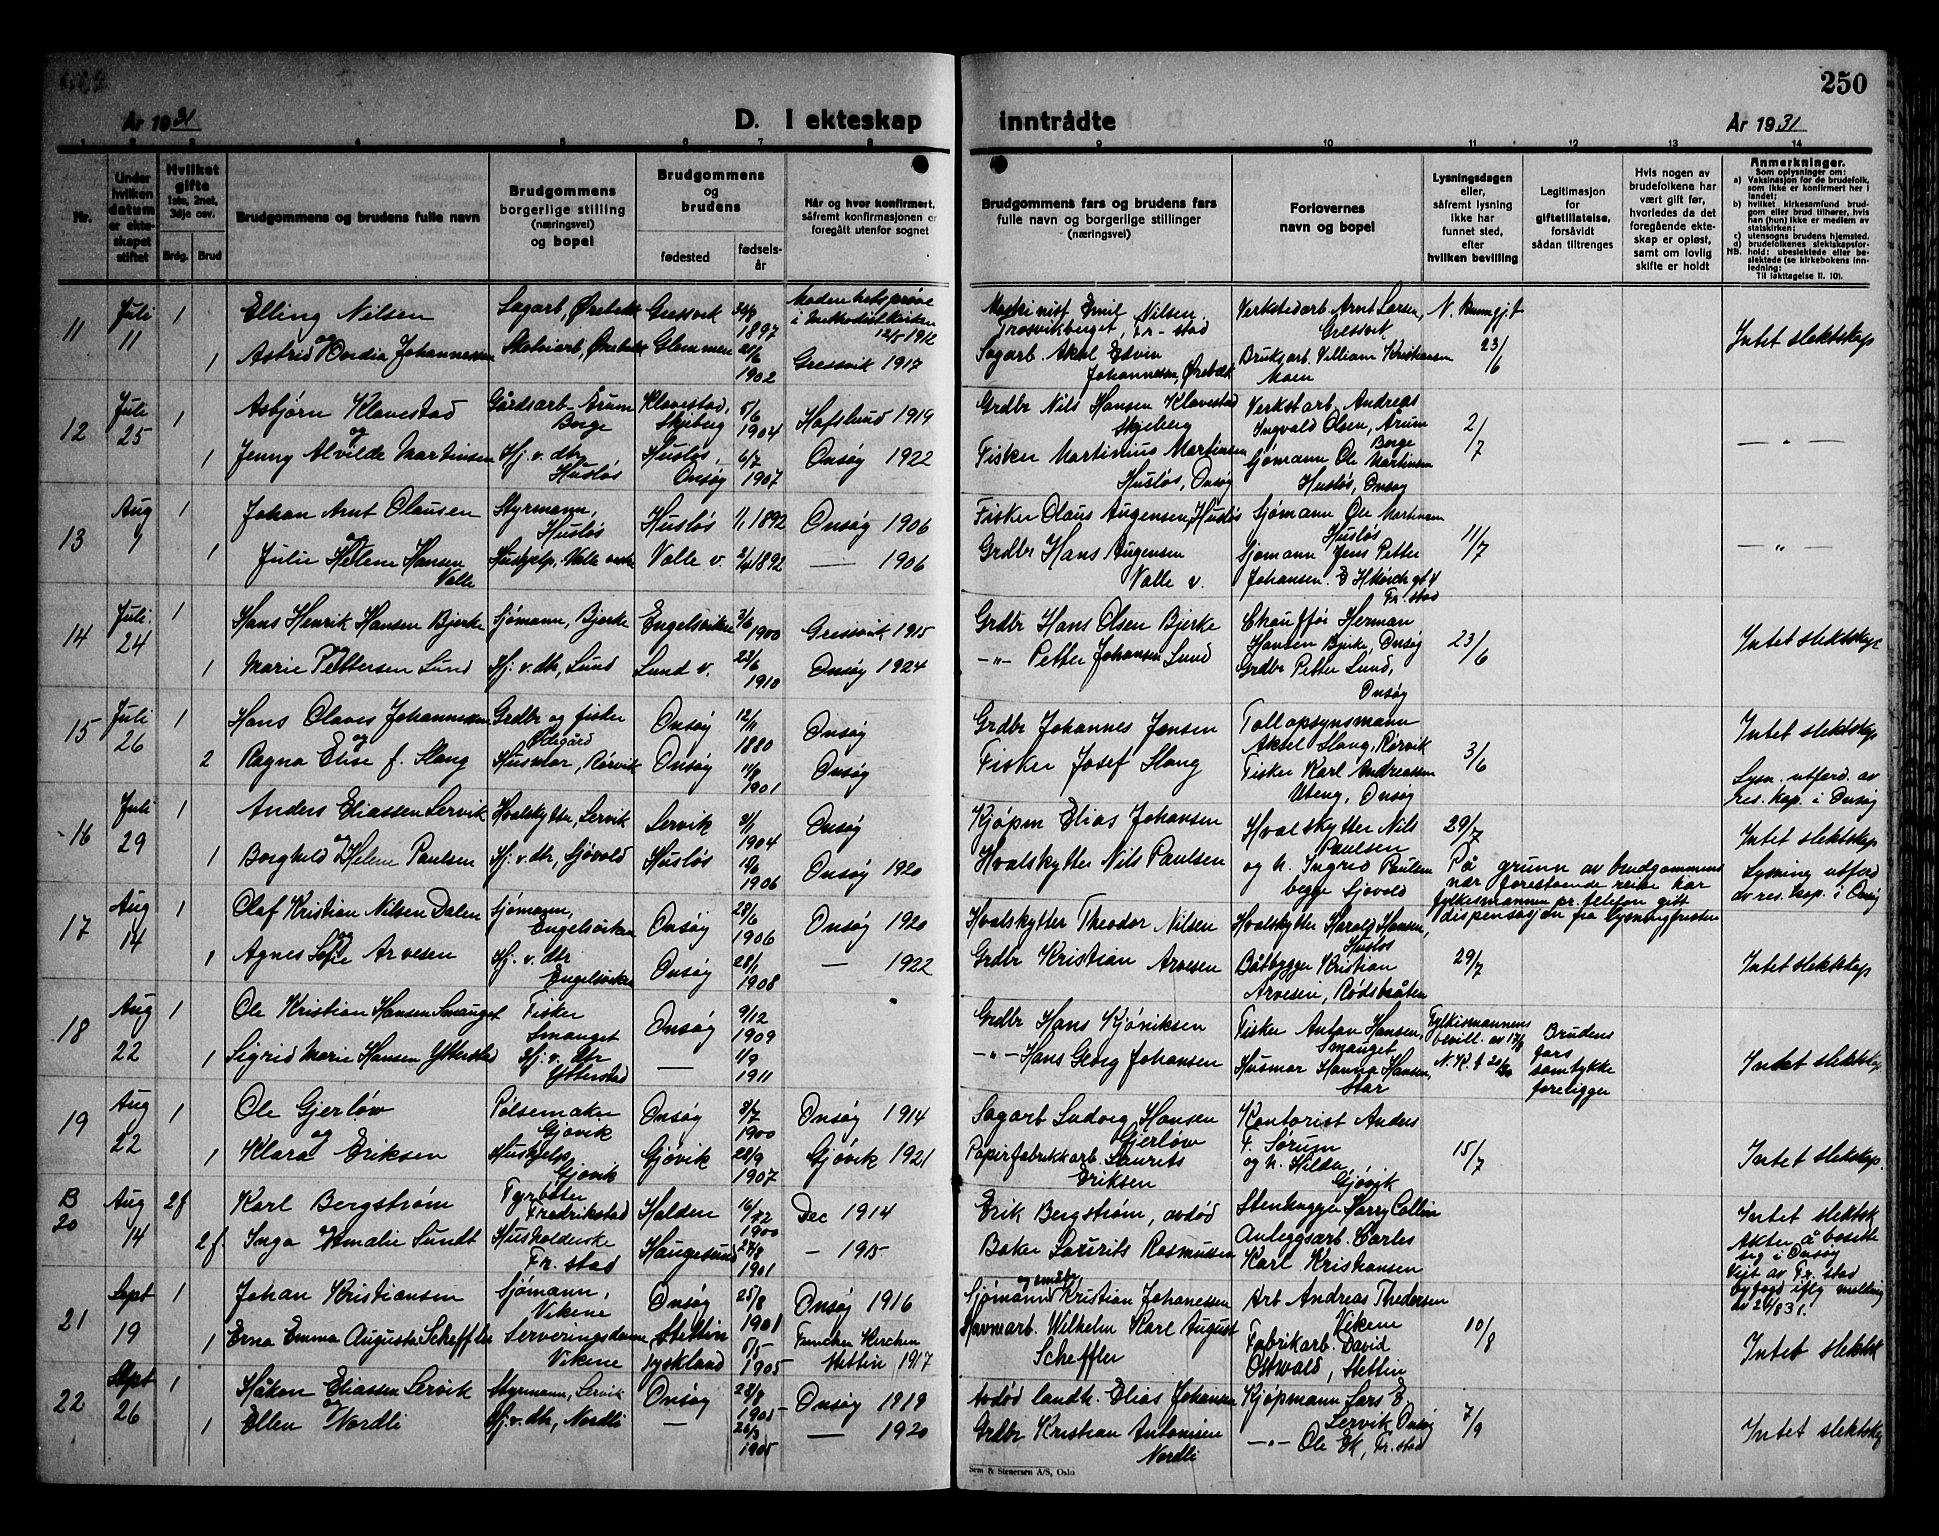 250
År 1931
D. I ekteskap inntrådte
År 1931
1 2 3 4 5 6 7 8 9 10 11 12 13 14
Nr.
Under hvilken datum er ekteskapet stiftet
Hvilket gifte 1ste, 2net, 3dje osv.
Brdg. Brud
Brudgommens og brudens fulle navn
Brudgommens borgerlige stilling (næringsvei) og bopel
Brudgommens og brudens
fødested
fødselsår
Når og hvor konfirmert, såfremt konfirmasjonen er foregått utenfor sognet
Brudgommens fars og brudens fars fulle navn og borgerlige stillinger (næringsvei)
Forlovernes navn og bopel
Lysningsdagen eller, såfremt lysning ikke har funnet sted, efter hvilken bevilling
Legitimasjon for giftetillatelse, forsåvidt sådan tiltrenges
Hvis nogen av brudefolkene har vært gift før, hvorledes da det foregående ekteskap er opløst, samt om lovlig skifte er holdt
Anmerkninger.
Som oplysning om:
a) Vaksinasjon for de brudefolk, som ikke er konfirmert her i landet;
b) hvilket kirkesamfund brudgom eller brud tilhører, hvis han (hun) ikke er medlem av statskirken;
c) utensogns brudens hjemsted.
d) brudefolkenes slektskapsforhold: ubeslektede eller beslektede (se kirkebokens innledning:
NB. Til iakttagelse II. 10).
11 Juli 11 1 Elling Nilsen Sagarb, Ørebekk Gressvik 1897 i Methodistkirken 12/5 1912 Maskinist Emil Nilsen Trosvikberget, Fr-stad Verkstedarb Arnt Larsen, Gressvik
og 1 Astrid Johannessen Ørebekk Glemmen 1902 Gressvik 1917 Sagarb Edvin Johannessen, Ørebekk Bruksarb William Kristiansen Moen 23/6 Intet slektskap
12 Juli 25 1 Asbjørn Klavestad Gårdsarb Årum Borge Klavestad, Skjeberg 5/6 1904 Hafslund 1919 Grdbr Nils Hansen Klavestad Skjeberg Verkstarb Andreas Ingvald Olsen, Årum Borge 2/7
og 1 Jenny Alvilde Martinsen Hj. v. dtr Husløs Husløs, Onsøy 6/7 1907 Onsøy 1922 Fisker Martinius Martinsen Husløs, Onsøy Sjømann Ole Martinsen Husløs, Onsøy — " —
13 Aug 1 Johan Arnt Olausen Styrmann, Husløs Husløs 1/1 1892 Onsøy 1906 Fisker Olaus Augensen, Husløs Sjømann Ole Martinsen Husløs 11/7
og 1 Julie Helene Hansen Valle Hushjelp, Valle Valle v. 2/4 1892 — 1906 Grdbr Hans Augensen Valle v. Sjømann Jens Petter Johansen Fr.stad — " —
14 Juli 24 1 Hans Henrik Hansen Bjerke Sjømann, Bjerke Engelsviken 3/6 1900 Gressvik 1915 Grdbr Hans Olsen Bjerke Chauffør Herman Hansen Bjerke, Onsøy 23/6
og 1 Marie Pettersen Lund Hj. v. dtr, Lund Lund v. 23/6 1910 Onsøy 1924 — " — Petter Johansen Lund Grdbr Petter Lund, Onsøy Intet slektskap
15 Juli 26 1 Hans Olaves Johannessen Grdbr og fisker Ødegård Onsøy 12/11 1880 Onsøy Grdbr Johannes Jensen Tollopsynsmann Aksel Slang, Rørvik 3/6 Intet slektskap
og 2 Ragna Elise f. Slang Husmor, Rørvik Onsøy 1901 Onsøy Fisker Josef Slang Fisker Karl Andreassen Uteng, Onsøy Lysn. utferd. av res. kap. i Onsøy
16 Juli 29 1 Anders Eliassen Lervik Hvalskytter, Lervik Lervik 1904 Onsøy Kjøpm Elias Johansen Hvalskytter Nils Paulsen 29/7 Intet slektskap
og 1 Borghild Helene Paulsen Hj. v. dtr, Sjøvold Husløs 1906 Onsøy 1920 Hvalskytter Nils Paulsen og h. Ingrid Paulsen begge Sjøvold På grunn av brudgommens nær forestående reise har fylkesmannen pr. telefon gitt dispensasjon fra lysningsfristen Lysning utferd av res. kap. i Onsøy
17 Aug 14 1 Olaf Kristian Nilsen Dalen Sjømann, Engelsviken Onsøy 28/6 1906 Onsøy 1920 Hvalskytter Theodor Nilsen Hvalskytter Harald Hansen, Husløs
og 1 Agnes Sofie Arvesen Hj. v. dtr Engelsviken Onsøy 28/1 1908 — 1922 Grdbr Kristian Arvesen Båtbygger Kristian Arvesen, Rødsbråten 29/7 Intet slektskap
18 Aug 22 1 Ole Kristian Hansen Smauget Fisker Smauget Onsøy 9/12 1909 Grdbr Hans Kjøniksen Fisker Anton Hansen, Smauget Fylkesmannens bevill. av 17/8 Brudens fars samtykke foreligger
1 Sigrid Marie Hansen Ytterstad Hj. v. dtr Ytterstad — 1/9 1911 — " — Hans Georg Johansen Husmor Hanna Hansen, Intet slektskap
19 Aug 22 1 Ole Gjerløv Pølsemaker Gjøvik Onsøy 3/7 1900 Onsøy 1914 Sagarb Ludvig Hansen Gjerløv Kontorist Anders F. Sørum 15/7
og 1 Klara Eriksen Hushjelp, Gjøvik Gjøvik 23/9 1907 Gjøvik 1921 Papirfabrikkarb. Laurits Eriksen og h. Hilda, Gjøvik Intet slektskap.
B 20 Aug 14 2f Karl Bergstrøm Fyrbøter Fredrikstad Halden 1900 Dec 1914 Erik Bergstrøm, avdød Stenhugger Harry Collin Intet slektsk
2f. Inga Amalie Lundt Husholderske Fr. stad Haugesund 27/8 1901 — 1915 Baker Laurits Rasmussen Anleggsarb. Carles Karl Kristiansen Akter å bosette sig i Onsøy Viet av Fr. stad byfogd iflg melding av
21 Sept 19 1 Johan Kristiansen Sjømann, Vikene Onsøy 25/8 1901 Onsøy 1916 Sjømann og småbr. Kristian Johanessen Arb Andreas Thedersen Vikene 10/8
1 Erna Emma Augusta Scheffler Serveringsdame, Vikene Stettin Tyskland 5/5 1905 Stettin 1917 Havnearb. Wilhelm Karl August Scheffler Fabrikarb. David Ostwald, Stettin Intet slektsk
22 Sept 26 1 Håkon Eliassen Lervik Styrmann, Lervik Onsøy 28/8 1905 Onsøy 1919 Avdød landh. Elias Johansen Kjøpmann Lars E Lervik Onsøy 7/9
og 1 Ellen Nordli Hj. v. dtr, Nordli — 1905 — 1920 Grdbr Kristian Antonisen Nordli — " — Ole Ek, Fr. stad Intet slektsk
Sem & Stenersen A/S, Oslo